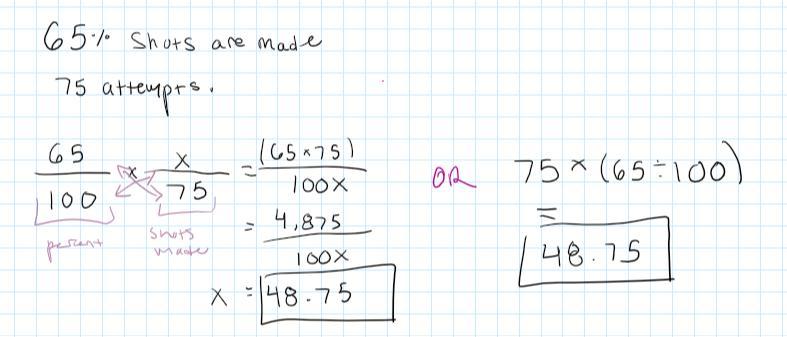 65% Shots are made
75 attempts.
65/100 × x/75 = (65×75)/100x
percent
shots made
= 4,875/100x
x = 48.75
OR
75 × (65÷100)
=
48.75